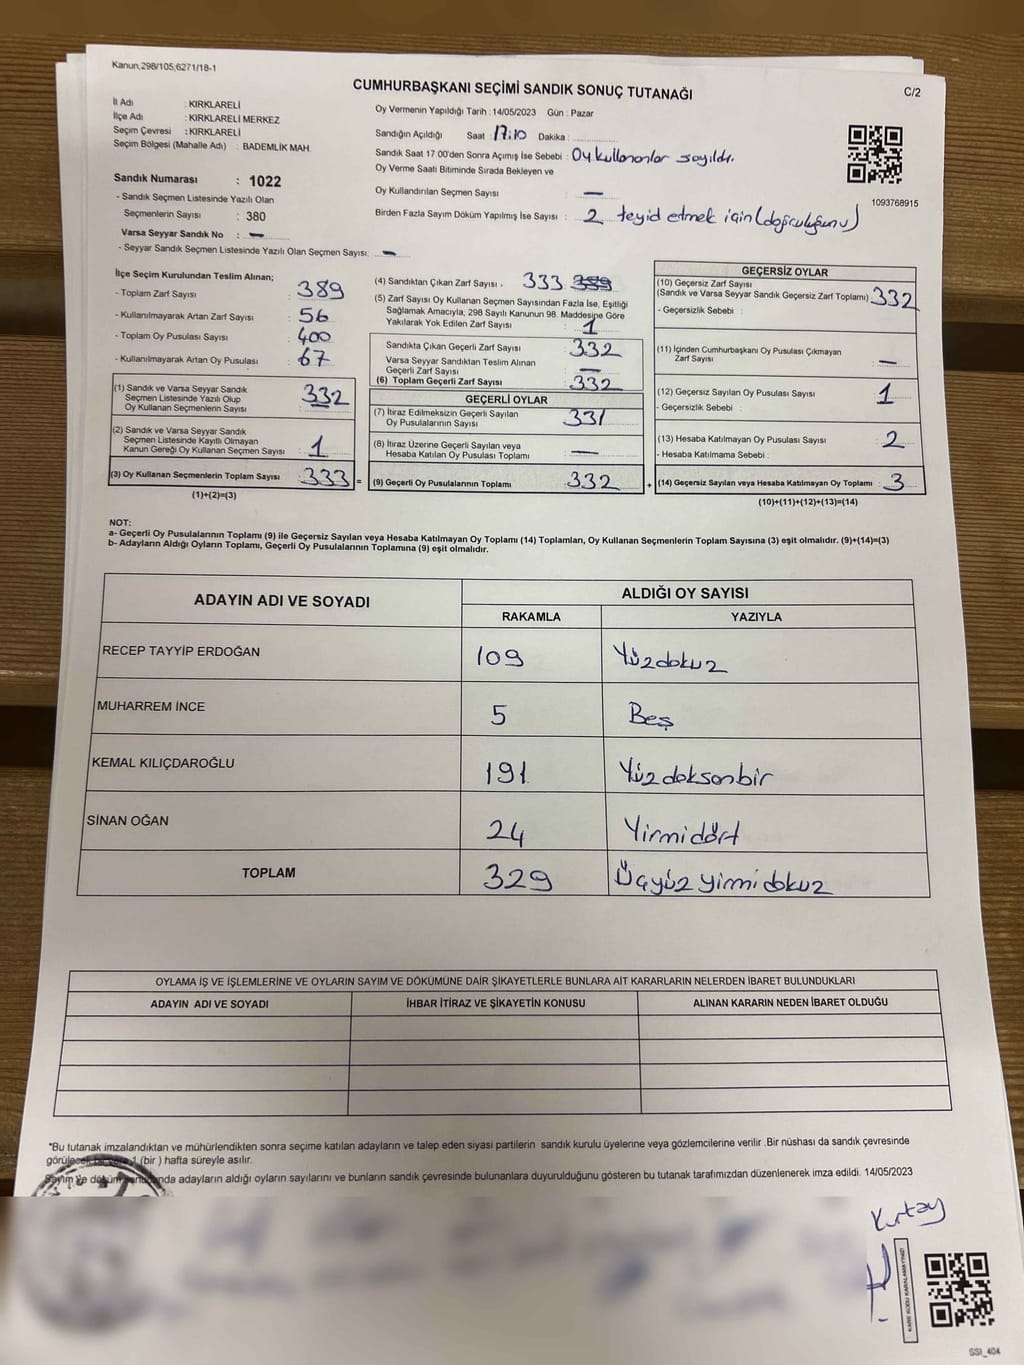 Kanun,298/105,6271/18-1
CUMHURBAŞKANI SEÇİMİ SANDIK SONUÇ TUTANAĞI
C/2
İl Adı : KIRKLARELİ
İlçe Adı : KIRKLARELİ MERKEZ
Seçim Çevresi : KIRKLARELİ
Seçim Bölgesi (Mahalle Adı) : BADEMLİK MAH.
Sandık Numarası : 1022
- Sandık Seçmen Listesinde Yazılı Olan
Seçmenlerin Sayısı : 380
Varsa Seyyar Sandık No : -
- Seyyar Sandık Seçmen Listesinde Yazılı Olan Seçmen Sayısı: -
Oy Vermenin Yapıldığı Tarih :14/05/2023 Gün : Pazar
Sandığın Açıldığı Saat : 17:10 Dakika :
Sandık Saat 17.00'den Sonra Açımış İse Sebebi : Oy kullananlar sayıldı.
Oy Verme Saati Bitiminde Sırada Bekleyen ve
Oy Kullandırılan Seçmen Sayısı : -
Birden Fazla Sayım Döküm Yapılmış İse Sayısı : 2 teyid etmek için (doğruluğunu)
1093768915
İlçe Seçim Kurulundan Teslim Alınan;
- Toplam Zarf Sayısı : 389
- Kullanılmayarak Artan Zarf Sayısı : 56
- Toplam Oy Pusulası Sayısı : 400
- Kullanılmayarak Artan Oy Pusulası : 67
(1) Sandık ve Varsa Seyyar Sandık
Seçmen Listesinde Yazılı Olup
Oy Kullanan Seçmenlerin Sayısı : 332
(2) Sandık ve Varsa Seyyar Sandık
Seçmen Listesinde Kayıtlı Olmayan
Kanun Gereği Oy Kullanan Seçmen Sayısı : 1
(3) Oy Kullanan Seçmenlerin Toplam Sayısı : 333
(1)+(2)=(3)
(4) Sandıktan Çıkan Zarf Sayısı : 333 389
(5) Zarf Sayısı Oy Kullanan Seçmen Sayısından Fazla İse, Eşitliği
Sağlamak Amacıyla, 298 Sayılı Kanunun 98. Maddesine Göre
Yakılarak Yok Edilen Zarf Sayısı : 1
Sandıkta Çıkan Geçerli Zarf Sayısı : 332
Varsa Seyyar Sandıktan Teslim Alınan
Geçerli Zarf Sayısı : -
(6) Toplam Geçerli Zarf Sayısı : 332
GEÇERLİ OYLAR
(7) İtiraz Edilmeksizin Geçerli Sayılan
Oy Pusulalarının Sayısı : 331
(8) İtiraz Üzerine Geçerli Sayılan veya
Hesaba Katılan Oy Pusulası Toplamı : -
= (9) Geçerli Oy Pusulalarının Toplamı : 332
GEÇERSİZ OYLAR
(10) Geçersiz Zarf Sayısı
(Sandık ve Varsa Seyyar Sandık Geçersiz Zarf Toplamı) : 332
- Geçersizlik Sebebi :
(11) İçinden Cumhurbaşkanı Oy Pusulası Çıkmayan
Zarf Sayısı : -
(12) Geçersiz Sayılan Oy Pusulası Sayısı : 1
- Geçersizlik Sebebi :
(13) Hesaba Katılmayan Oy Pusulası Sayısı : 2
- Hesaba Katılmama Sebebi :
+ (14) Geçersiz Sayılan veya Hesaba Katılmayan Oy Toplamı : 3
(10)+(11)+(12)+(13)=(14)
NOT:
a- Geçerli Oy Pusulalarının Toplamı (9) ile Geçersiz Sayılan veya Hesaba Katılmayan Oy Toplamı (14) Toplamları, Oy Kullanan Seçmenlerin Toplam Sayısına (3) eşit olmalıdır. (9)+(14)=(3)
b- Adayların Aldığı Oyların Toplamı, Geçerli Oy Pusulalarının Toplamına (9) eşit olmalıdır.
ADAYIN ADI VE SOYADI ALDIĞI OY SAYISI
RAKAMLA YAZIYLA
RECEP TAYYİP ERDOĞAN 109 Yüzdokuz
MUHARREM İNCE 5 Beş
KEMAL KILIÇDAROĞLU 191 Yüzdoksanbir
SİNAN OĞAN 24 Yirmidört
TOPLAM 329 Üçyüzyirmidokuz
OYLAMA İŞ VE İŞLEMLERİNE VE OYLARIN SAYIM VE DÖKÜMÜNE DAİR ŞİKAYETLERLE BUNLARA AİT KARARLARIN NELERDEN İBARET BULUNDUKLARI
ADAYIN ADI VE SOYADI İHBAR İTİRAZ VE ŞİKAYETİN KONUSU ALINAN KARARIN NEDEN İBARET OLDUĞU
*Bu tutanak imzalandıktan ve mühürlendikten sonra seçime katılan adayların ve talep eden siyasi partilerin sandık kurulu üyelerine veya gözlemcilerine verilir .Bir nüshası da sandık çevresinde
görülecek bir yere 1 (bir ) hafta süreyle asılır.
Sayım ve döküm sonucunda adayların aldığı oyların sayılarını ve bunların sandık çevresinde bulunanlara duyurulduğunu gösteren bu tutanak tarafımızdan düzenlenerek imza edildi. 14/05/2023
Kurtay
KARE KODU KARALAMAYINIZ!
SSI_404